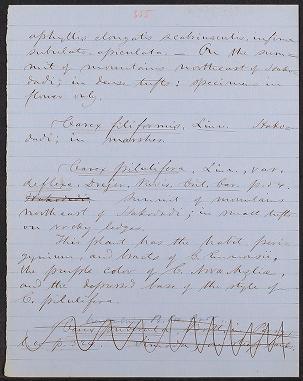 355
aphyllis elongatis scabriusculis, infima
subulata, apiculata. — On the sum-
mit of mountains northeast of Hako-
dadi; in dense tufts: specimens in
flower only.
Carex filiformis, Linn. Hako-
dadi; in marshes.
Carex pilulifera, Linn., var.
deflexa. Drejer, Revis. Crit. Car. p. 54.
Hakodadi Summit of mountains
northeast of Hakodadi; in small tufts
on rocky ledges.
This plant has the habit, perig-
ynium, and bracts of C.
the purple color of C. Novae-Angliae,
and the depressed base of the style of
C. pilulifera.